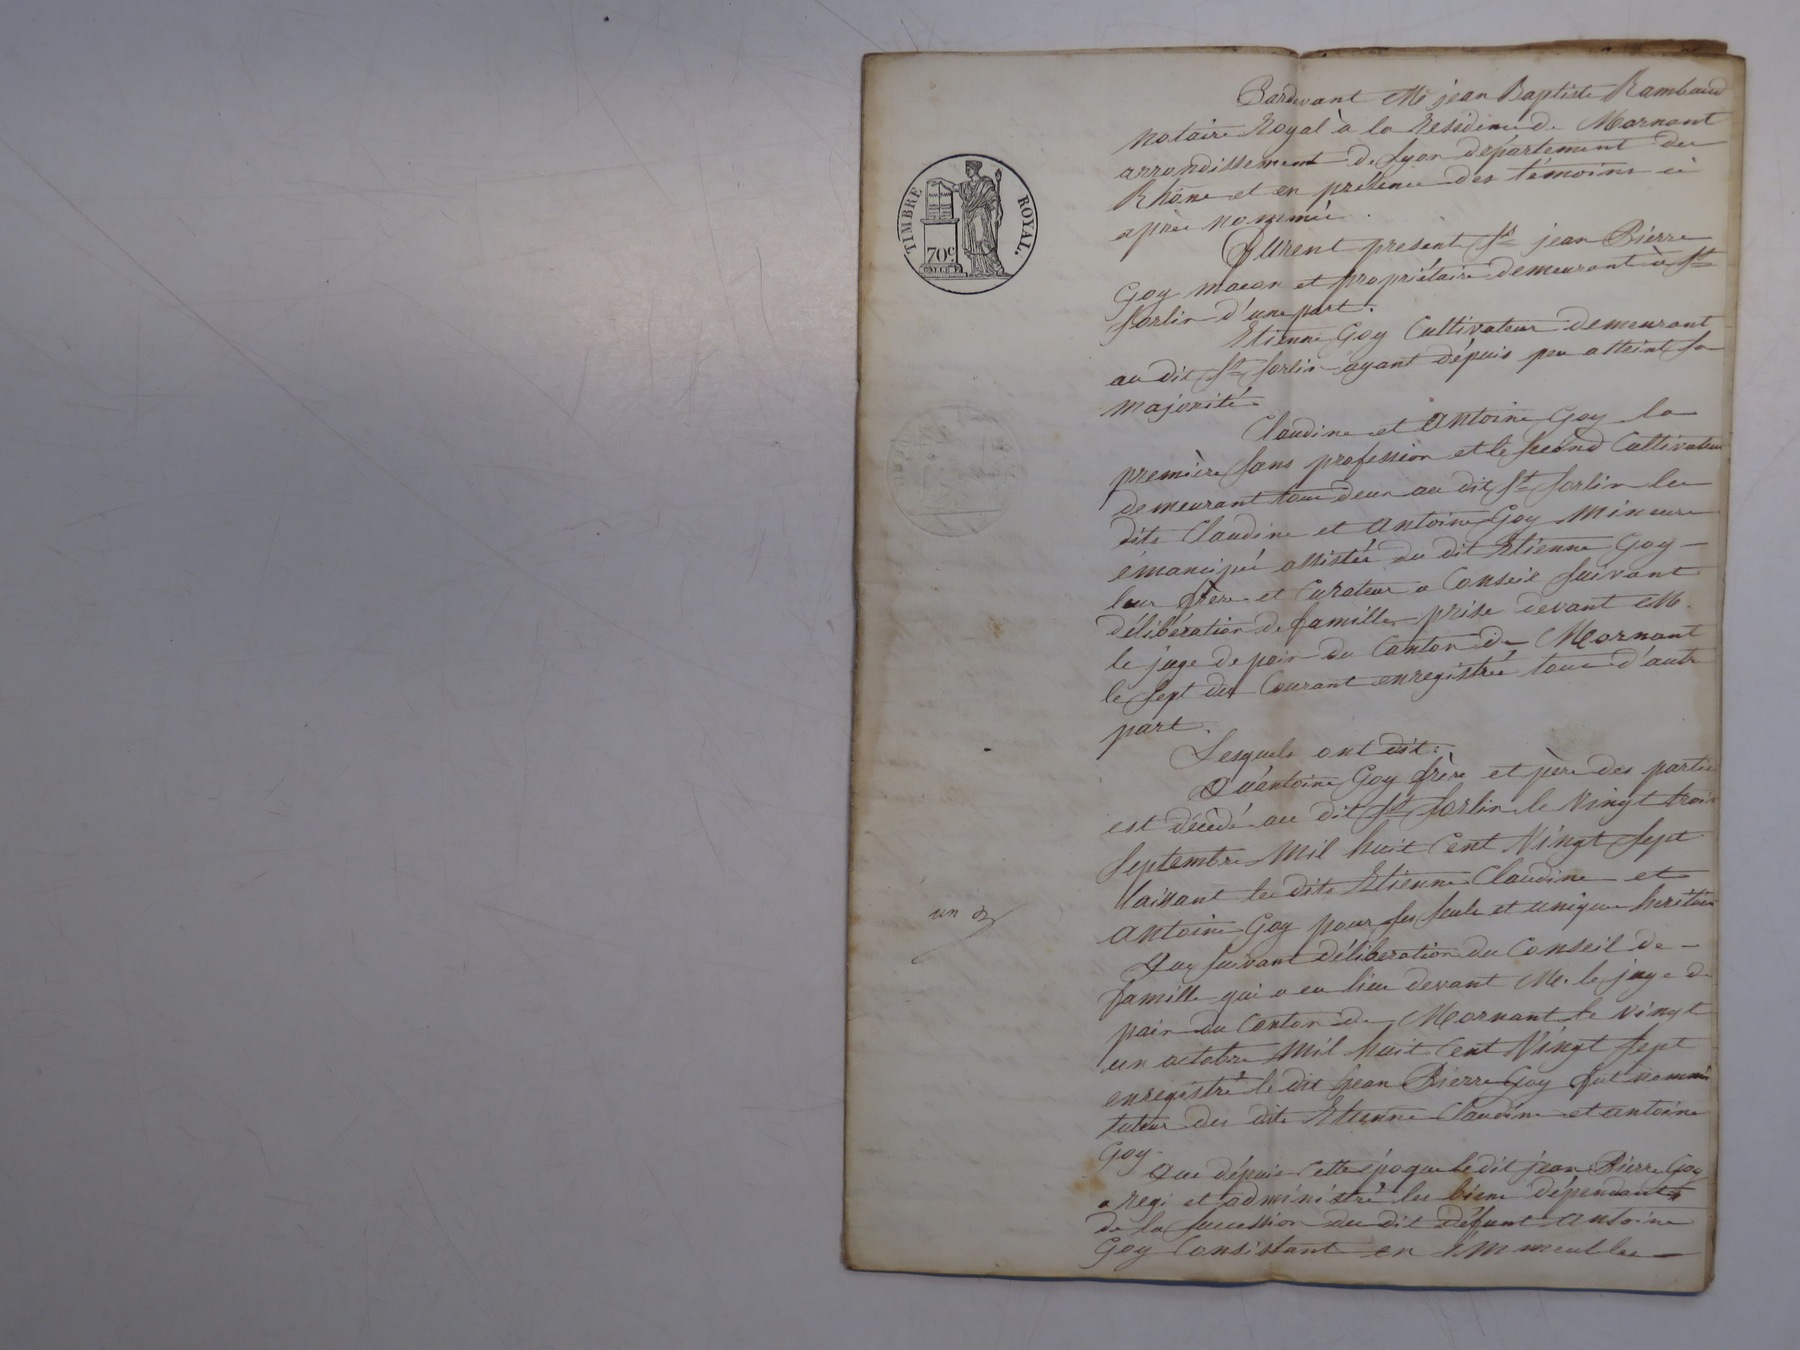 TIMBRE ROYAL.
70c
un
Pardevant Me jean Baptiste Rambaud
notaire Royal à la Résidence de Mornant
arrondissement de Lyon département du
Rhône et en présence des témoins ci
après nommés.
Furent présents Sr jean Pierre
Goy macon et propriétaire demeurant à St
Sorlin d'une part.
Etienne Goy Cultivateur demeurant
au dit St Sorlin ayant dépuis peu atteint sa
majorité
Claudine et Antoine Goy la
première sans profession et le second Cultivateur
demeurant tous deux au dit St Sorlin les
dits Claudine et Antoine Goy Mineurs
émancipés assistés du dit Etienne Goy –
leur frère et Curateur a Conseil suivant
délibération de famille prise devant M.
le juge de paix du Canton de Mornant
le sept du Courant enregistrée tous d'autre
part.
Lesquels ont dit:
Qu'antoine Goy frère et père des parties
est décédé au dit St Sorlin le Vingt trois
Septembre Mil huit Cent Vingt Sept
laissant les dits Etienne Claudine et
Antoine Goy pour ses seuls et uniques héritiers
Que suivant délibération du Conseil de –
famille qui a eu lieu devant M. le juge de
paix du Canton de Mornant le vingt
un octobre Mil huit Cent Vingt Sept
enregistré le dit Jean Pierre Goy fut nommé
tuteur des dits Etienne Claudine et antoine
Goy.
Que dépuis Cette époque le dit jean Pierre Goy
a Régi et administré les biens dépendants
de la succession du dit défunt Antoine
Goy Consistant en immeubles –